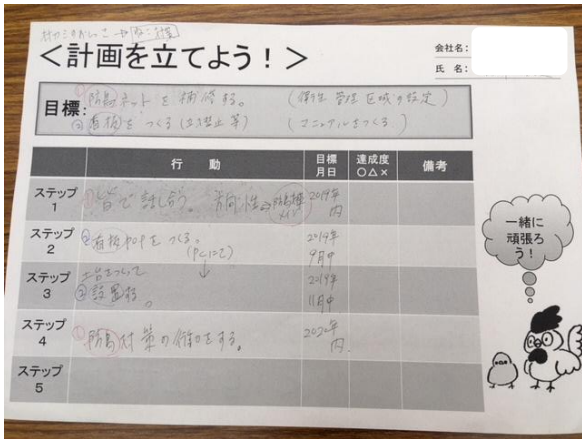 ＜計画を立てよう！＞
会社名：
氏 名：
目標：
①防鳥ネットを補修する。（衛生管理区域の設定）
②看板をつくる（立入禁止等）（マニュアルをつくる）
行 動 目標月日 達成度○△× 備考
ステップ1 ①皆で話し合う。方向性⇒ 2019年内
ステップ2 ②看板POPをつくる。（PCにて） 2019年9月中
ステップ3 土台をつくって②設置する。 2019年11月中
ステップ4 ①防鳥対策の備えをする。 2020年内
ステップ5
一緒に
頑張ろ
う！